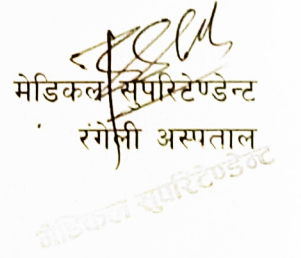 मेडिकल सुपरिटेण्डेन्ट
रंगेली अस्पताल
मेडिकल सुपरिटेण्डेन्ट